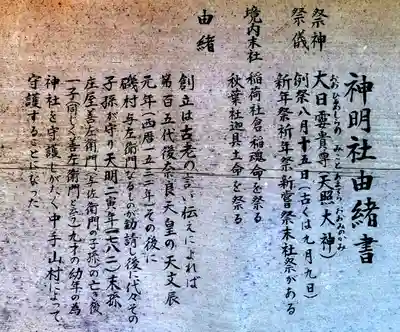 神明社由緒書
祭神
大日孁貴尊(天照大神)
おおひるめむちのみこと あまてらすおおみのかみ
祭儀
例祭八月十五日(古くは九月九日)
新年祭祈年祭新嘗祭末社祭がある
境内末社
稲荷社倉稲魂命を祭る
秋葉社迦具土命を祭る
由緒
創立は古老の言い伝えによれば
第百五代後奈良天皇の天文辰
元年(西暦一五三二年)その後に
磯村与左衛門なるものが勧請し後に代々その
子孫が守り天明二寅年(一七八二)末孫
庄屋善左衛門(与左衛門の子孫)の亡き後
一子(同じく善左衛門と云う)九才の幼年の為
神社を守護しがたく中子山村によって
守護することになった